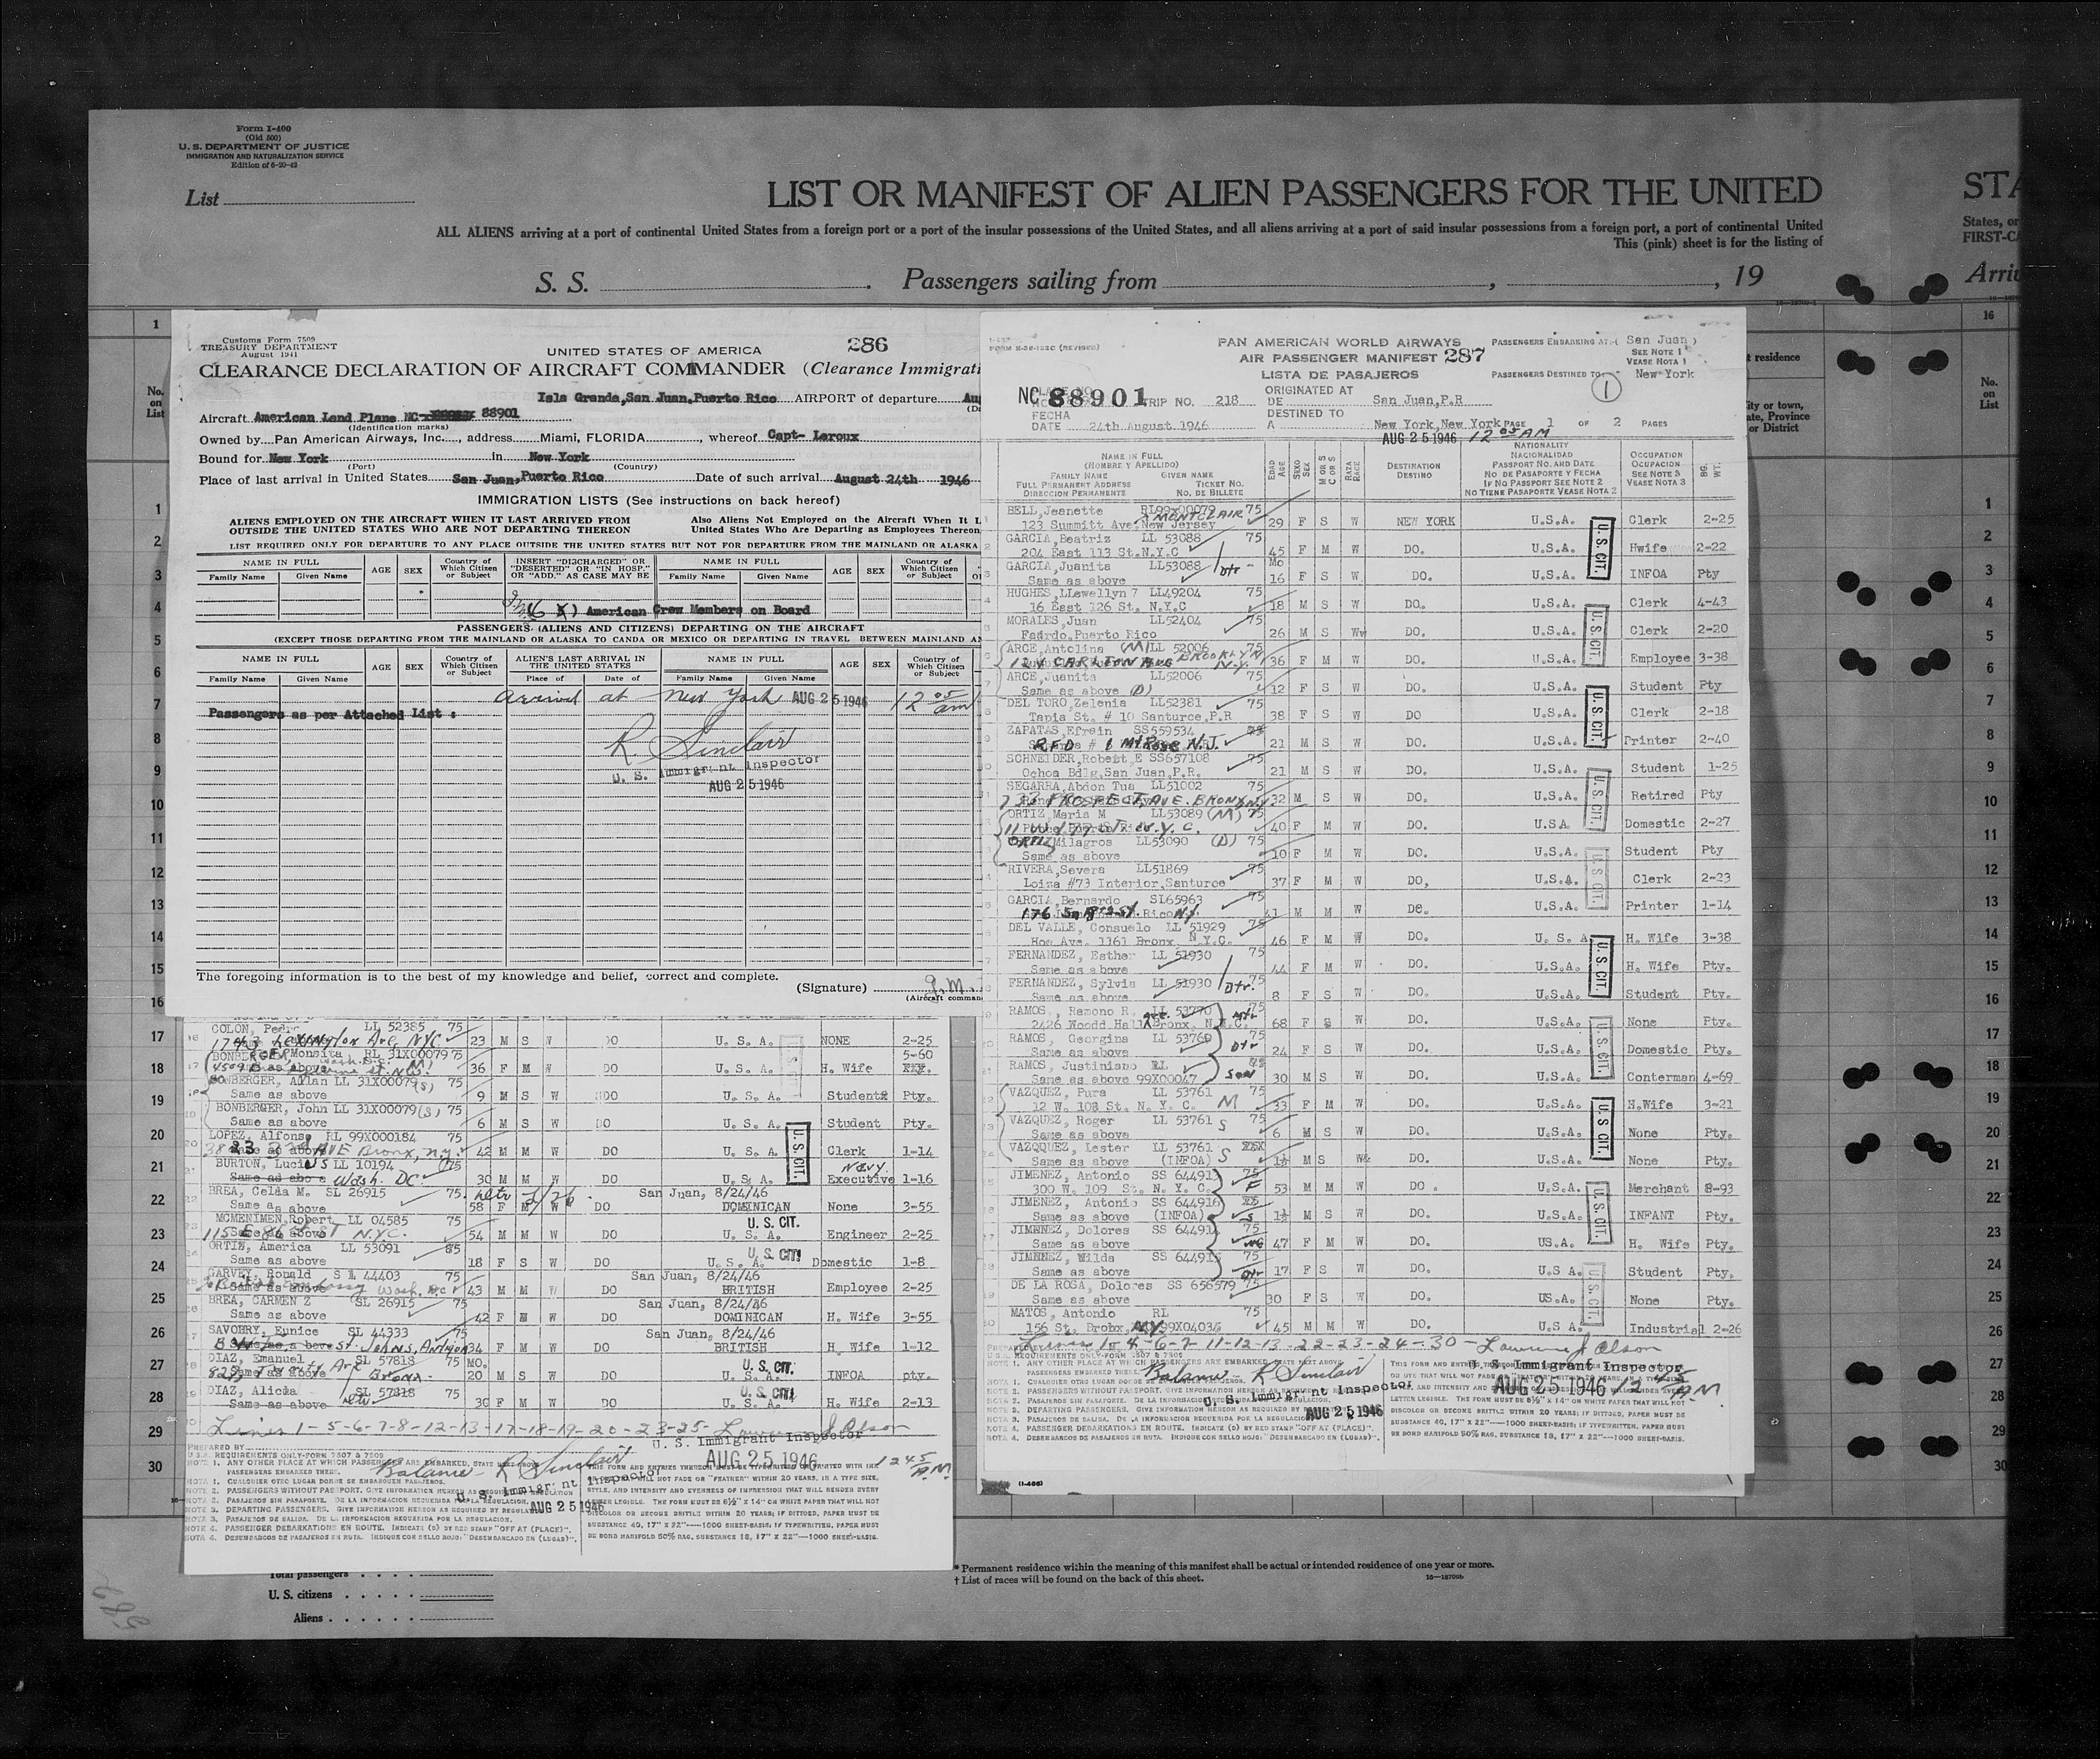 Form I-400
(Old 500)
U. S. DEPARTMENT OF JUSTICE
IMMIGRATION AND NATURALIZATION SERVICE
Edition of 6-20-42
List
LIST OR MANIFEST OF ALIEN PASSENGERS FOR THE UNITED
ALL ALIENS arriving at a port of continental United States from a foreign port or a port of the insular possessions of the United States, and all aliens arriving at a port of said insular possessions from a foreign port, a port of continental United
This (pink) sheet is for the listing of
S. S. Passengers sailing from , , 19
STA
States, or
FIRST-CA
Arri
Customs Form 7509
TREASURY DEPARTMENT
August 1941
UNITED STATES OF AMERICA
286
CLEARANCE DECLARATION OF AIRCRAFT COMMANDER (Clearance Immigrati
Isla Grande, San Juan, Puerto Rico AIRPORT of departure Au
Aircraft American Land Plane NC 88901
(Identification marks)
Owned by Pan American Airways, Inc., address Miami, FLORIDA, whereof Capt- Leroux
Bound for New York in New York
(Port) (Country)
Place of last arrival in United States San Juan, Puerto Rico Date of such arrival August 24th 1946
IMMIGRATION LISTS (See instructions on back hereof)
ALIENS EMPLOYED ON THE AIRCRAFT WHEN IT LAST ARRIVED FROM
OUTSIDE THE UNITED STATES WHO ARE NOT DEPARTING THEREON
Also Aliens Not Employed on the Aircraft When It L
United States Who Are Departing as Employees Thereon
LIST REQUIRED ONLY FOR DEPARTURE TO ANY PLACE OUTSIDE THE UNITED STATES BUT NOT FOR DEPARTURE FROM THE MAINLAND OR ALASKA
NAME IN FULL AGE SEX Country of Which Citizen or Subject INSERT "DISCHARGED" OR "DESERTED" OR "IN HOSP." OR "ADD," AS CASE MAY BE NAME IN FULL AGE SEX Country of Which Citizen or Subject
Family Name Given Name Family Name Given Name
American Crew Members on Board
PASSENGERS (ALIENS AND CITIZENS) DEPARTING ON THE AIRCRAFT
(EXCEPT THOSE DEPARTING FROM THE MAINLAND OR ALASKA TO CANDA OR MEXICO OR DEPARTING IN TRAVEL BETWEEN MAINLAND AN
NAME IN FULL AGE SEX Country of Which Citizen or Subject ALIEN'S LAST ARRIVAL IN THE UNITED STATES NAME IN FULL AGE SEX Country of Which Citizen or Subject
Family Name Given Name Place of Date of Family Name Given Name
Arrived at New York AUG 25 1946 12 05 am
Passengers as per Attached List :
R. Sinclair
U. S. Immigrant Inspector
AUG 25 1946
The foregoing information is to the best of my knowledge and belief, correct and complete.
(Signature)
(Aircraft comman
COLON, Pedro LL 52385 75
1743 Lexington Ave, NYC 23 M S W DO U. S. A. NONE 2-25
Monsita RL 31X00079 75 5-60
36 F M W DO U. S. A. H. Wife
BONBERGER, Allan LL 31X00079 (S) 75
Same as above 9 M S W DO U. S. A. Student Pty.
BONBERGER, John LL 31X00079 (S) 75
Same as above 6 M S W DO U. S. A. Student Pty.
LOPEZ, Alfonso RL 99X000184 75
AVE Bronx, n.y. 42 M M W DO U. S. A. Clerk 1-14
BURTON, Lucius LL 10194 75 Navy
Same as above Wash. DC 30 M M W DO U. S. A. Executive 1-16
BREA, Celda M. SL 26915 75 San Juan, 8/24/46
Same as above 58 F DO DOMINICAN None 3-55
MCMENIMEN, Robert LL 04585 75 U. S. CIT.
115 E 86 ST N.Y.C. 54 M M W DO U. S. A. Engineer 2-25
ORTIZ, America LL 53091
Same as above 18 F S W DO U. S. A. Domestic 1-8
GARVEY, Ronald SL 44403 75 San Juan, 8/24/46
Wash, DC 43 M M W DO BRITISH Employee 2-25
BREA, CARMEN Z SL 26915 75 San Juan, 8/24/46
Same as above 42 F M W DO DOMINICAN H. Wife 3-55
SAVOERY, Eunice SL 44333 75 San Juan, 8/24/46
St. Johns, 34 F M W DO BRITISH H. Wife 1-12
DIAZ, Emanuel SL 57818 75 MO. U. S. CIT.
Bronx 20 M S W DO U. S. A. INFOA pty.
DIAZ, Alicia SL 57818 75 U. S. CIT
Same as above 30 F M W DO U. S. A. H. Wife 2-13
Lines 1-5-6-7-8-12-13-17-18-19-20-23-25- Olson
U. S. Immigrant Inspector
Balance - R Sinclair AUG 25 1946 12 45 A.M.
U. S. Immigrant Inspector
AUG 25 1946
PREPARED BY
U.S. REQUIREMENTS ONLY-FORM 7507 & 7509
NOTE 1. ANY OTHER PLACE AT WHICH PASSENGERS ARE EMBARKED, STATE
PASSENGERS EMBARKED THERE.
NOTE 2. PASSENGERS WITHOUT PASSPORT. GIVE INFORMATION HEREON AS
NOTA 2. PASAJEROS SIN PASAPORTE. DE LA INFORMACION REQUERIDA LA REGULACION.
NOTE 3. DEPARTING PASSENGERS. GIVE INFORMATION HEREON AS REQUIRED BY
NOTA 3. PASAJEROS DE SALIDA. DE LA INFORMACION REQUERIDA POR LA REGULACION.
NOTE 4. PASSENGER DEBARKATIONS EN ROUTE. INDICATE (D) BY RED STAMP "OFF AT (PLACE)".
NOTA 4. DESEMBARCOS DE PASAJEROS EN RUTA. INDIQUE CON SELLO ROJO: "DESEMBARCADO EN (LUGAR)".
STYLE, AND INTENSITY AND EVENNESS OF IMPRESSION THAT WILL RENDER EVERY
LETTER LEGIBLE. THE FORM MUST BE 8½" X 14" ON WHITE PAPER THAT WILL NOT
DISCOLOR OR BECOME BRITTLE WITHIN 20 YEARS; IF DITTOED, PAPER MUST BE
SUBSTANCE 40, 17" X 22"—1000 SHEET-BASIS; IF TYPEWRITTEN, PAPER MUST
BE BOND MANIFOLD 50% RAG, SUBSTANCE 18, 17" X 22"—1000 SHEET-BASIS.
PAN AMERICAN WORLD AIRWAYS
AIR PASSENGER MANIFEST 287
LISTA DE PASAJEROS
PASSENGERS EMBARKING AT:( San Juan )
SEE NOTE 1
VEASE NOTA 1
PASSENGERS DESTINED TO: New York
1
NC 88901 TRIP NO. 218
ORIGINATED AT
DE San Juan, P.R
DESTINED TO
A New York, New York PAGE 1 OF 2 PAGES
FECHA
DATE 24th August 1946
AUG 25 1946 12 05 AM
NAME IN FULL
(NOMBRE Y APELLIDO)
FAMILY NAME GIVEN NAME
FULL PERMANENT ADDRESS TICKET NO.
DIRECCION PERMANENTE NO. DE BILLETE
EDAD AGE SEXO SEX M OR S C OR S RAZA RACE
DESTINATION DESTINO
NATIONALITY
NACIONALIDAD
PASSPORT NO. AND DATE
NO DE PASAPORTE Y FECHA
IF NO PASSPORT SEE NOTE 2
NO TIENE PASAPORTE VEASE NOTA 2
OCCUPATION
OCUPACION
SEE NOTE 3
VEASE NOTA 3
BG. WT.
BELL, Jeanette RL99x00079 75
MONTCLAIR
123 Summitt Ave, New Jersey 29 F S W NEW YORK U.S.A. Clerk 2-25
GARCIA, Beatriz LL 53088 75
204 East 113 St. N.Y.C 45 F M W DO. U.S.A. Hwife 2-22
GARCIA, Juanita LL53088 Dtr
Same as above 16 F S W DO. U.S.A. INFOA Pty
HUGHES, LLewellyn 7 LL49204 75
16 East 126 St. N.Y.C 18 M S W DO. U.S.A. Clerk 4-43
MORALES, Juan LL52404 75
Faardo, Puerto Rico 26 M S DO. U.S.A. Clerk 2-20
ARCE, Antolina (M) LL 52006 75
CARLTON AVE BROOKLYN N.Y. 36 F M W DO. U.S.A. Employee 3-38
ARCE, Juanita LL52006 75
Same as above (D) 12 F S W DO. U.S.A. Student Pty
DEL TORO, Zelenia LL52381 75
Tapia St. # 10 Santurce, P.R 38 F S W DO U.S.A. Clerk 2-18
ZAPATA, Efrain SS559534
RFD # 1 N.J. 21 M S W DO. U.S.A. Printer 2-40
SCHNEIDER, Robert E SS657108 75
Ochoa Bdlg, San Juan, P.R. 21 M S W DO. U.S.A. Student 1-25
SEGARRA, Abdon Tua LL51002 75
733 PROSPECT, AVE. BRONX, NY 32 M S W DO. U.S.A. Retired Pty
ORTIZ, Maria M LL53089 (M) 75
N.Y.C. 40 F M W DO. U.S.A Domestic 2-27
ORTIZ Milagros LL53090 (D) 75
Same as above 10 F M W DO. U.S.A. Student Pty
RIVERA, Severa LL51869 75
Loiza #73 Interior, Santurce 37 F M W DO, U.S.A. Clerk 2-23
GARCIA, Bernardo SL65963 75
176 NY. 41 M M W DO. U.S.A. Printer 1-14
DEL VALLE, Consuelo LL 51929 75
Hoe Ave. 1161 Bronx, N.Y.C. 46 F M W DO. U. S. A. H. Wife 3-38
FERNANDEZ, Esther LL 51930 75
Same as above 44 F M W DO. U.S.A. H. Wife Pty.
FERNANDEZ, Sylvia LL 51930 Dtr. 75
Same as above 8 F S W DO. U.S.A. Student Pty.
RAMOS, Ramono R. LL 53770 75
2426 Woodd Hall Ave Bronx, N.Y.C. 68 F S W DO. U.S.A. None Pty.
RAMOS, Georgina LL 53760 75
Same as above Dtr 24 F S W DO. U.S.A. Domestic Pty.
RAMOS, Justiniano RL
Same as above 99X00047 Son 30 M S W DO. U.S.A. Conterman 4-69
VAZQUEZ, Pura LL 53761 75
12 W. 108 St. N. Y. C. M 33 F M W DO. U.S.A. H.Wife 3-21
VAZQUEZ, Roger LL 53761 S 75
Same as above 6 M S W DO. U.S.A. None Pty.
VAZQQUEZ, Lester LL 53761 S
Same as above (INFOA) 1½ M S DO. U.S.A. None Pty.
JIMENEZ, Antonio SS 644913 75
300 W. 109 St. N. Y. C. F 53 M M W DO. U.S.A. Merchant 8-93
JIMENEZ, Antonio SS 644916
Same as above (INFOA) S 1½ M S W DO. U.S.A. INFANT Pty.
JIMENEZ, Dolores SS 64491 75
Same as above 47 F M W DO. US.A. H. Wife Pty.
JIMENEZ, Wilda SS 644915 75
Same as above Dtr 17 F S W DO. U.S A. Student Pty.
DE LA ROSA, Dolores SS 656579 75
Same as above 30 F S W DO. US.A. None Pty.
MATOS, Antonio RL 75
156 St, Bronx, N.Y. 99X04034 45 M M W DO. U.S A. Industrial 2-26
Lines 1-4-6-7-11-12-13-22-23-24-30- Lawrence J Olson
U. S. Immigrant Inspector
Balance - R Sinclair AUG 25 1946 12 45 A.M
U. S. Immigrant Inspector
AUG 25 1946
U. S. CIT.
(I-466)
Total passengers
U. S. citizens
Aliens
* Permanent residence within the meaning of this manifest shall be actual or intended residence of one year or more.
† List of races will be found on the back of this sheet.